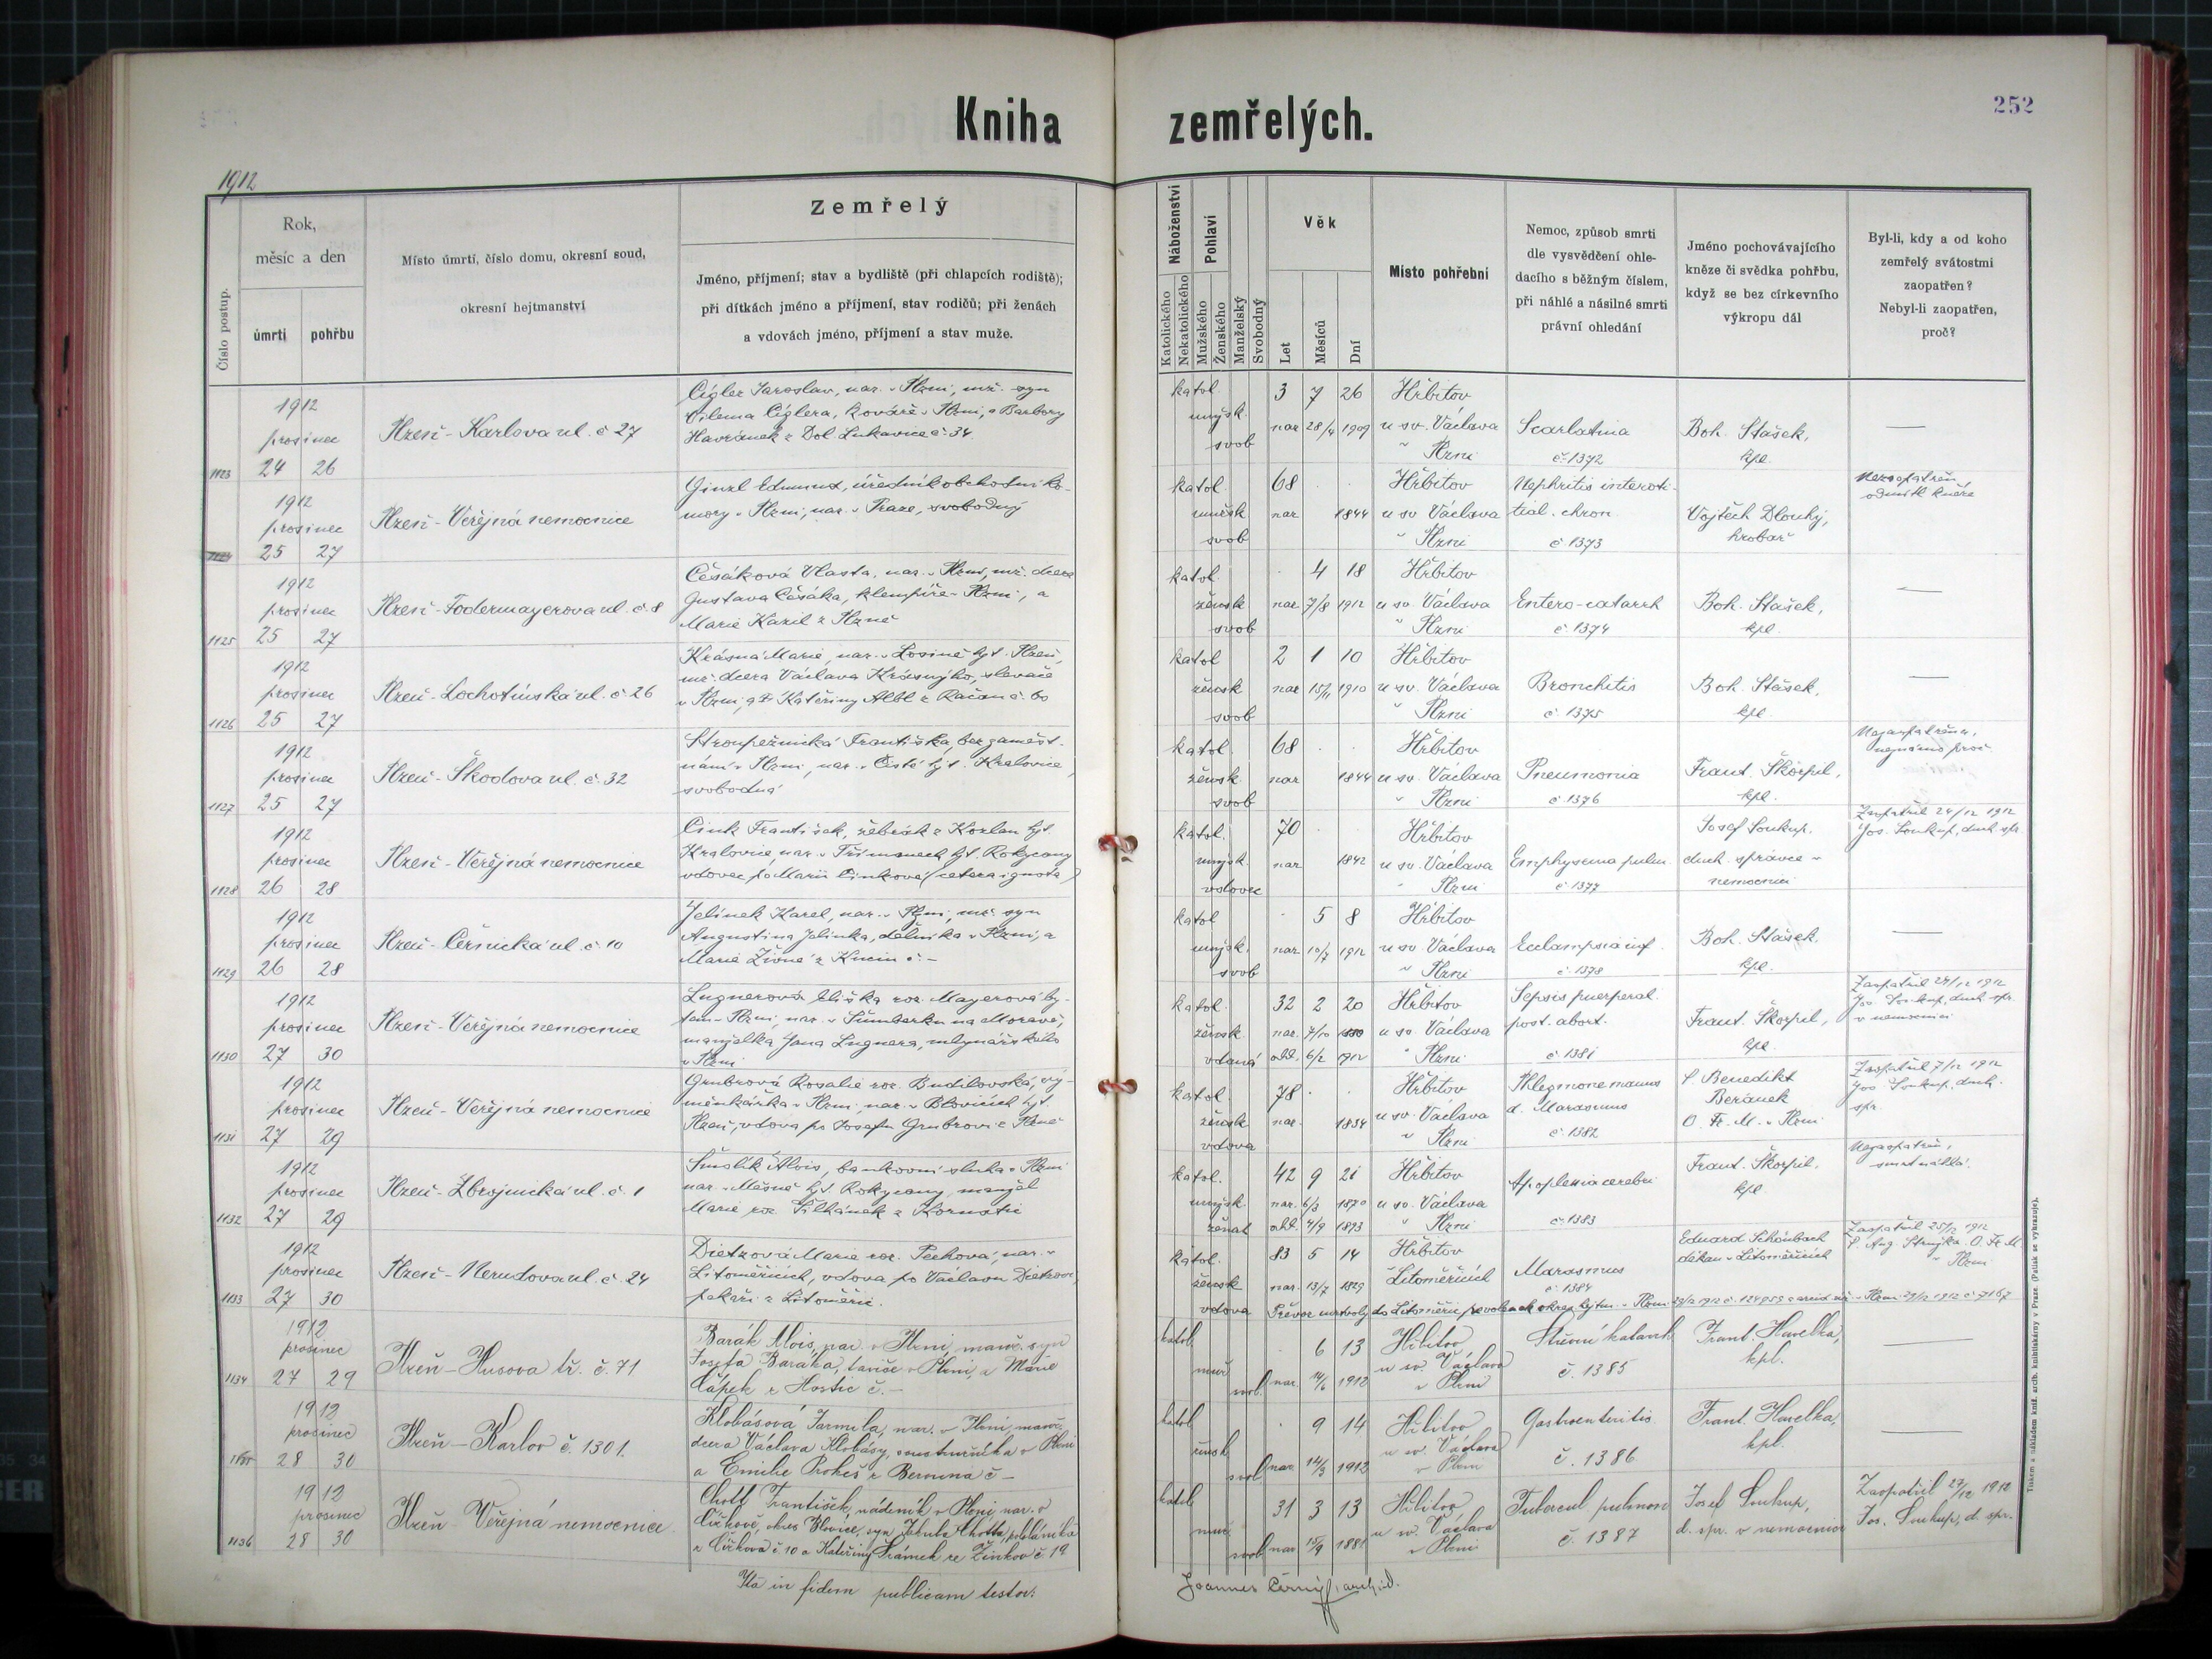 Kniha zemřelých.
252
1912
Číslo postup.
Rok,
měsíc a den
úmrtí
pohřbu
Místo úmrtí, číslo domu, okresní soud,
okresní hejtmanství
Zemřelý
Jméno, příjmení; stav a bydliště (při chlapcích rodiště);
při dítkách jméno a příjmení, stav rodičů; při ženách
a vdovách jméno, příjmení a stav muže.
Náboženství
Katolického
Nekatolického
Pohlaví
Mužského
Ženského
Manželský
Svobodný
Věk
Let
Měsíců
Dní
Místo pohřební
Nemoc, způsob smrti
dle vysvědčení ohle-
dacího s běžným číslem,
při náhlé a násilné smrti
právní ohledání
Jméno pochovávajícího
kněze či svědka pohřbu,
když se bez církevního
výkropu dál
Byl-li, kdy a od koho
zemřelý svátostmi
zaopatřen?
Nebyl-li zaopatřen,
proč?
1123
1912
prosinec
24 26
Plzeň - Karlova ul. č 27
Cígler Jaroslav, nar. v Plzni, mž. syn
Viléma Cíglera, kováře v Plzni, a Barbory
Havránek z Dol. Lukavice č. 34.
katol.
mužsk.
svob
3 7 26
nar 28/4 1909
Hřbitov
u sv. Václava
v Plzni
Scarlatina
č. 1372
Boh. Stašek,
kpl.
—
1912
prosinec
25 27
Plzeň - Veřejná nemocnice
Ginzl Edmund, úředník obchodní ko-
mory v Plzni, nar. v Praze, svobodný
katol.
mužsk
svob
68
nar 1844
Hřbitov
u sv Václava
v Plzni
Nephritis intersti-
tial. chron.
č. 1373
Vojtěch Dlouhý,
hrobař
Nezaopatřen,
odmítl kněze
1125
1912
prosinec
25 27
Plzeň - Fodermayerova ul. č. 8
Češáková Vlasta, nar. v Plzni, mž. dcera
Gustava Češáka, klempíře v Plzni, a
Marie Karil z Plzně
katol.
žensk
svob
4 18
nar 7/8 1912
Hřbitov
u sv. Václava
v Plzni
Entero-catarrh
č. 1374
Boh. Stašek,
kpl.
—
1126
1912
prosinec
25 27
Plzeň - Lochotínská ul. č 26
Krásná Marie, nar. v Losiné hjt. Plzeň,
mž. dcera Václava Krásnýho, slevače
v Plzni, a Kateřiny Albl z
katol
žensk
svob
2 1 10
nar 15/11 1910
Hřbitov
u sv. Václava
v Plzni
Bronchitis
č. 1375
Boh. Stašek,
kpl.
—
1127
1912
prosinec
25 27
Plzeň - Škodova ul. č. 32
Stroupežnická Františka, bez zaměst-
nání v Plzni, nar. v Čisté hjt. Kralovice,
svobodná
katol.
žensk.
svob
68
nar 1844
Hřbitov
u sv. Václava
v Plzni
Pneumonia
č. 1376
Frant. Škorpil,
kpl.
Nezaopatřena,
neznámo proč
1128
1912
prosinec
26 28
Plzeň - Veřejná nemocnice
Cink František, žebrák z Kozlan hjt.
Kralovice, nar. v Třímanech hjt. Rokycany
vdovec po Marii Cinkové (cetera ignota)
katol.
mužsk.
vdovec
70
nar 1842
Hřbitov
u sv. Václava
v Plzni
Emphysema pulm.
č. 1377
Josef Soukup,
duch. správce v
nemocnici
Zaopatřil 24/12 1912
Jos. Soukup, duch. spr.
1129
1912
prosinec
26 28
Plzeň - Černická ul. č. 10
Jelínek Karel, nar. v Plzni, mž. syn
Augustina Jelínka, dělníka v Plzni, a
Marie Živné z
katol
mužsk.
svob
5 8
nar 1912
Hřbitov
u sv. Václava
v Plzni
Eclampsia inf.
č. 1378
Boh. Stašek,
kpl.
—
1130
1912
prosinec
27 30
Plzeň - Veřejná nemocnice
Lugnerová Eliška roz. Mayerová by-
tem v Plzni, nar. v Šumberku na Moravě,
manželka Jana Lugnera, mlynářského
v Plzni
katol.
žensk
vdaná
32 2 20
nar. 7/10 1880
odd. 6/2 1912
Hřbitov
u sv. Václava
v Plzni
Sepsis puerperal.
post. abort.
č. 1381
Frant. Škorpil,
kpl.
Zaopatřil 24/12 1912
Jos. Soukup, duch. spr.
v nemocnici
1131
1912
prosinec
27 29
Plzeň - Veřejná nemocnice
Grubrová Rosalie roz. Budilovská, vý-
měnkářka v Plzni, nar. v Blovicích hjt.
Plzeň, vdova po Josefu Grubrovi z Plzně
katol.
žensk
vdova
78
nar. 1834
Hřbitov
u sv. Václava
v Plzni
Phlegmone manus
d. Marasmus
č. 1382
P. Benedikt
Beránek
O. Fr. M. v Plzni
Zaopatřil 7/12 1912
Jos. Soukup, duch.
spr.
1132
1912
prosinec
27 29
Plzeň - Zbrojnická ul. č. 1
Smolík Alois, bankovní sluha v Plzni
nar. v hjt. Rokycany, manžel
Marie roz. z
katol.
mužsk.
ženat
42 9 21
nar. 6/3 1870
odd. 4/9 1893
Hřbitov
u sv. Václava
v Plzni
Apoplexia cerebri
č. 1383
Frant. Škorpil,
kpl.
Nezaopatřen,
smrt náhlá.
1133
1912
prosinec
27 30
Plzeň - Nerudova ul. č. 24
Dietzová Marie roz. Pechová, nar. v
Litoměřicích, vdova po Václavu Dietzovi,
pekaři z Litoměřic.
katol.
žensk
vdova
83 5 14
nar. 13/7 1829
Hřbitov
v Litoměřicích
Marasmus
č. 1384
Eduard Schönbach
děkan v Litoměřicích
Zaopatřil 25/12 1912
P. Aug. O. Fr. M.
v Plzni
Převoz mrtvoly do Litoměřic povolen okres. hejtm. v Plzni 29/12 1912 č. 124959 v Plzni 29/12 1912 č 7167
1134
1912
prosinec
27 29
Plzeň - Husova tř. č. 71
Barák Alois, nar. v Plzni, manž. syn
Josefa Baráka, v Plzni, a Marie
Čápek z Hostic č. -
katol.
muž.
svob.
6 13
nar. 14/6 1912
Hřbitov
u sv. Václava
v Plzni
Střevní katarrh
č. 1385
Frant. Havelka,
kpl.
—
1135
1912
prosinec
28 30
Plzeň - Karlov č. 1301.
Klobásová Jarmila, nar. v Plzni, manž.
dcera Václava Klobásy, soustružníka v Plzni
a Emilie Prokeš z Berouna č -
katol.
žensk
svob.
9 14
nar 14/3 1912
Hřbitov
u sv. Václava
v Plzni
Gastroenteritis
č. 1386
Frant. Havelka,
kpl.
—
1136
1912
prosinec
28 30
Plzeň Veřejná nemocnice
Chott František, nádeník v Plzni, nar. v
Čížkově okres Blovice, syn Jakuba Chotta,
z Čížkova č 10 a Kateřiny Šrámek ze Žinkov č 19
katol.
muž.
svob.
31 3 13
nar 15/9 1881
Hřbitov
u sv. Václava
v Plzni
Tubercul. pulmon.
č. 1387
Josef Soukup,
d. spr. v nemocnici
Zaopatřil 23/12 1912
Jos. Soukup, d. spr.
Ita in fidem publicam testor:
Joannes Černý, archid.
Tiskem a nákladem kníž. arcib. knihtiskárny v Praze. (Patisk se vykazuje).